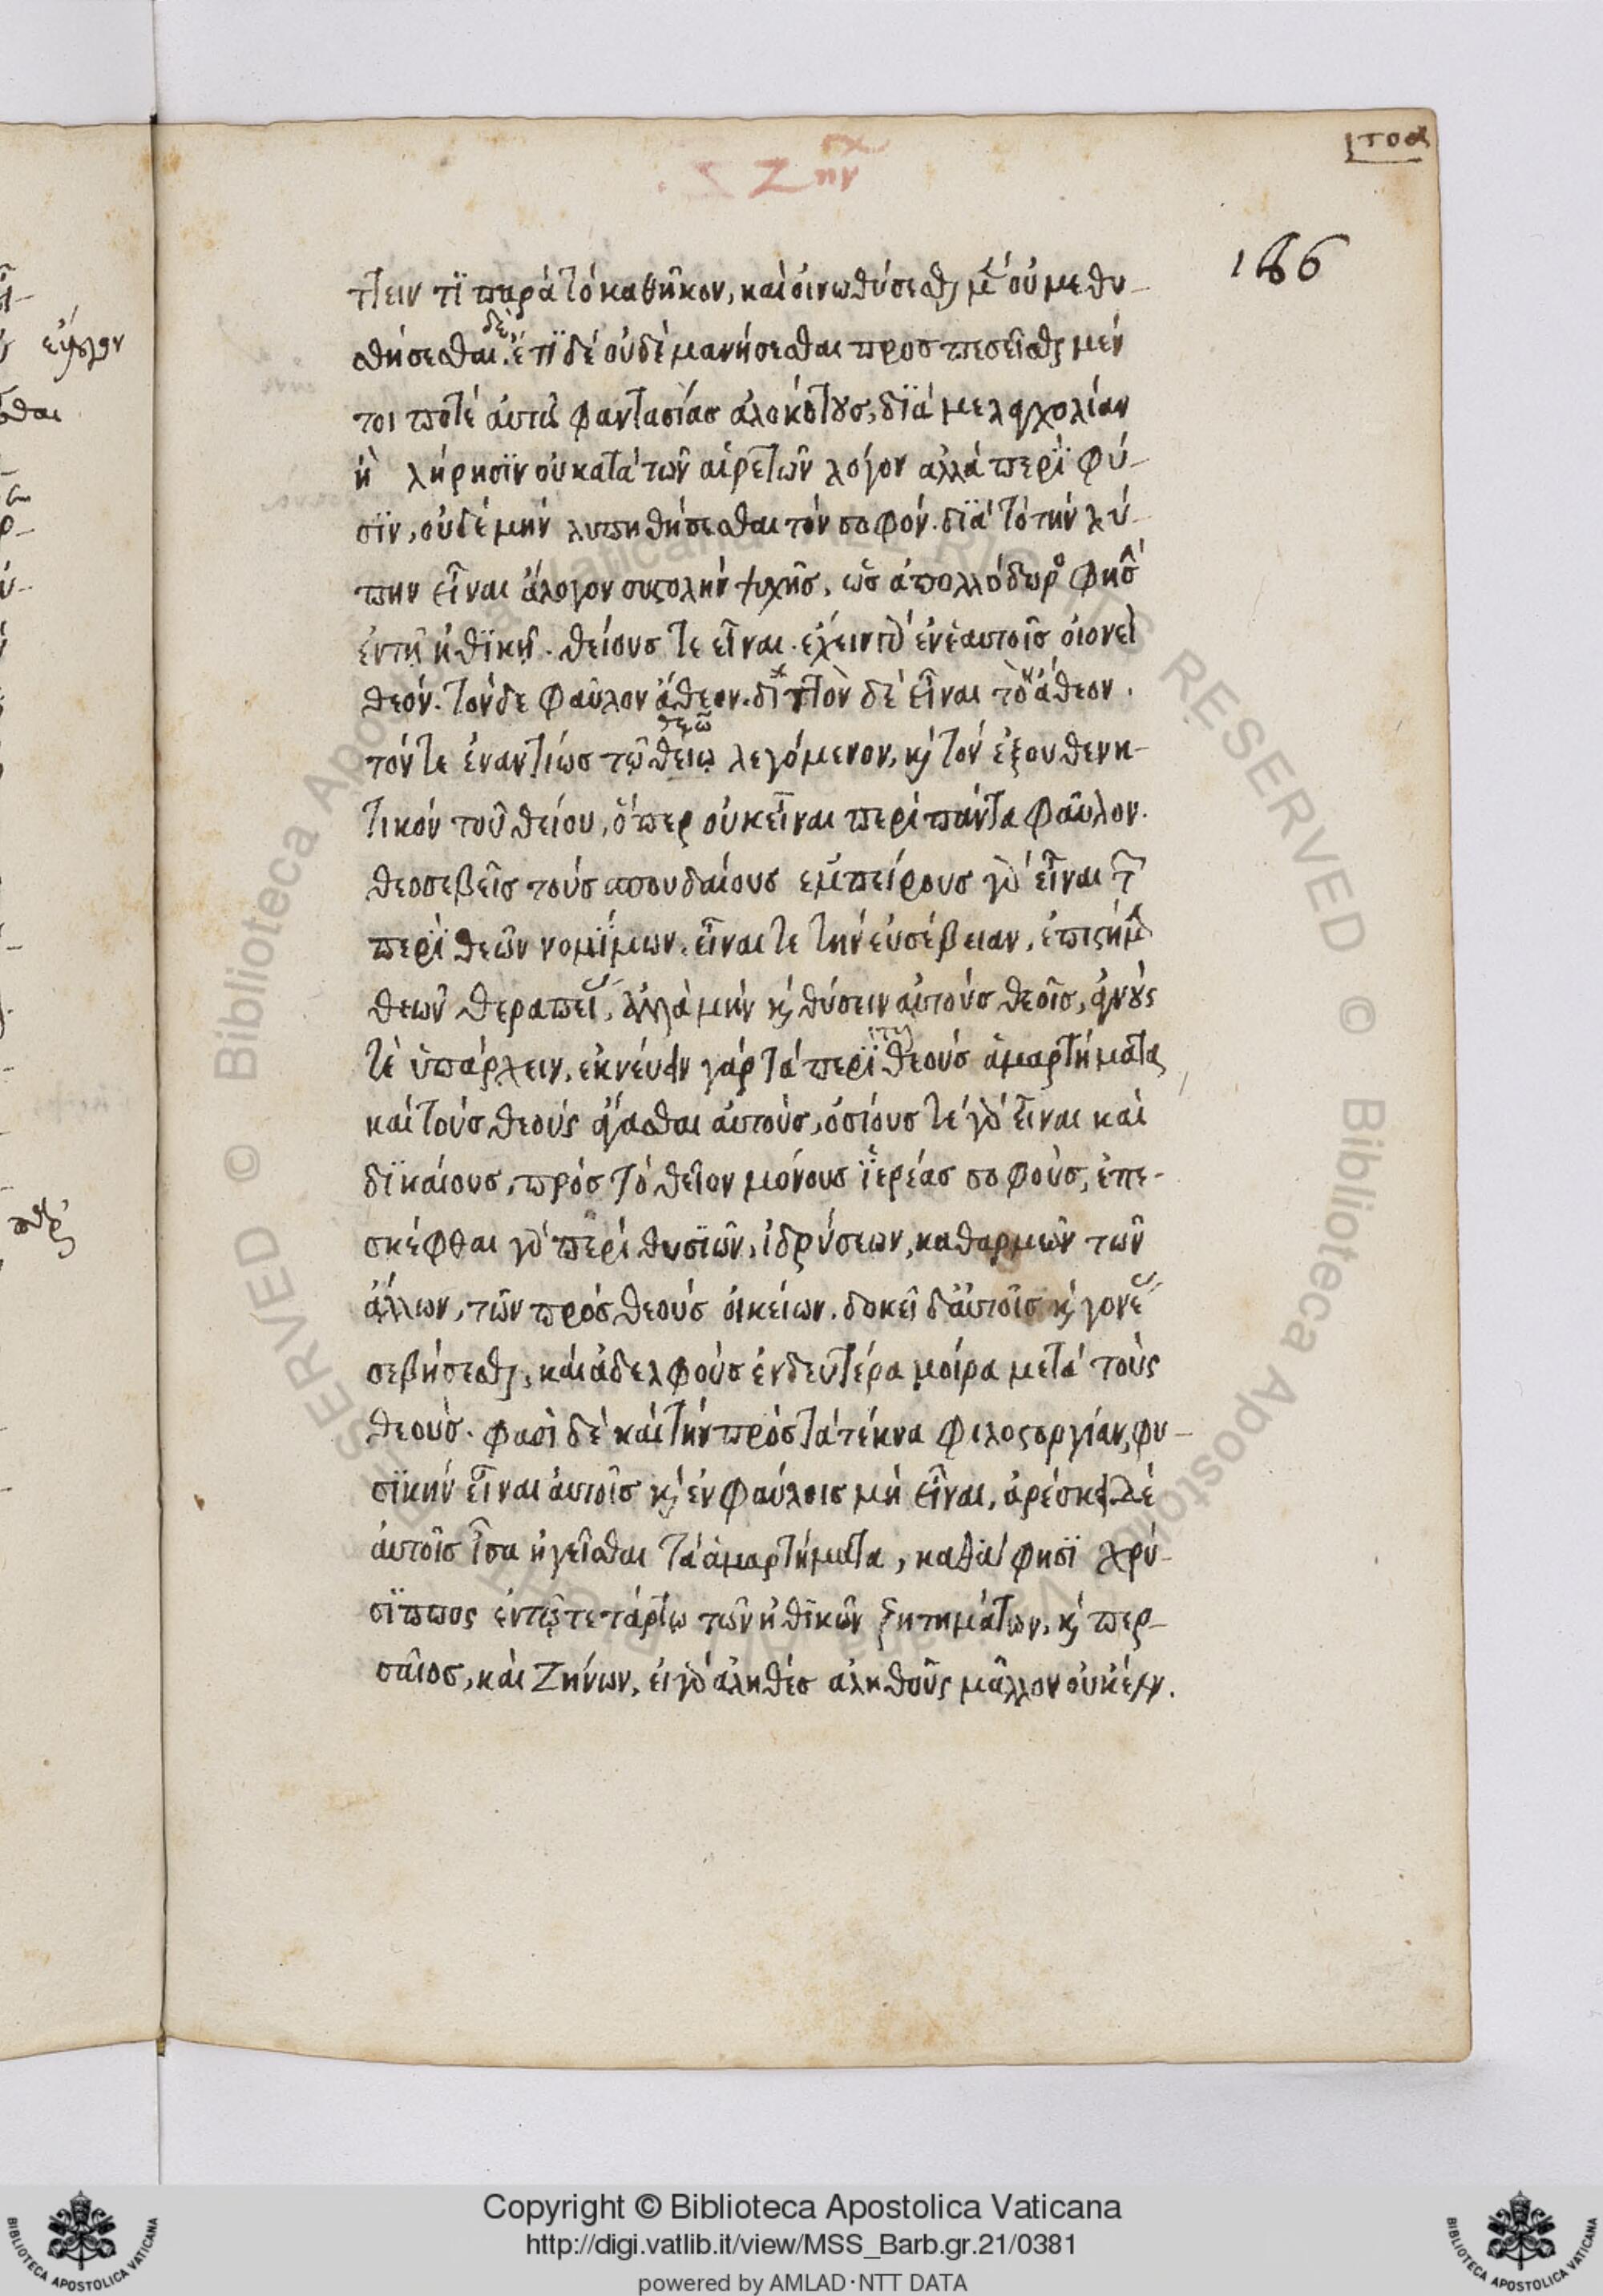 τοα
Ζην
166
ττειν τὶ παρὰ τὸ καθῆκον, καὶ οἰνωθήσεσθαι μὲν οὐ μεθυ-
σθήσεσθαι δὲ. ἔτι δὲ οὐδὲ μανήσεσθαι προσπεσεῖσθαι μέν
τοι ποτὲ αὐτῶ φαντασίας ἀλοκότους, διὰ μελαγχολίαν
ἢ λήρησιν οὐ κατὰ τῶν αἱρετῶν λόγον ἀλλὰ περὶ φύ-
σιν, οὐδὲ μὴν λυπηθήσεσθαι τὸν σοφόν. διὰ τὸ τὴν λύ-
πην εἶναι ἄλογον συστολὴν ψυχῆς, ὡς ἀπολλόδωρος φησ
ἐν τῆ ἠθικῆ. θείους τε εἶναι. ἔχειν γὰρ ἐν ἑαυτοῖς οἱονεὶ
θεόν. τόνδε φαῦλον ἄθεον. διττὸν δὲ εἶναι τὸν ἄθεον.
τόν τε ἐναντίως τῷ θείῳ λεγόμενον, καὶ τὸν ἐξουθενη-
τικὸν τοῦ θείου, ὅπερ οὐκ εἶναι περὶ πάντα φαῦλον.
θεοσεβεῖς τοὺς σπουδαίους ἐμπείρους γὰρ εἶναι τῶν
περὶ θεῶν νομίμων. εἶναι τε τὴν εὐσέβειαν, ἐπιστήμην
θεῶν θεραπείας, ἀλλὰ μὴν καὶ θύσειν αὐτοὺς θεοῖς, ἁγνούς
τὲ ὑπάρχειν, ἐκνεύειν γὰρ τὰ περὶ θεοὺς ἁμαρτήματα,
καὶ τοὺς θεοὺς ἄγασθαι αὐτούς, ὁσίους τὲ γὰρ εἶναι καὶ
δικαίους, πρὸς τὸ θεῖον μόνους ἱερέας σοφούς, ἐπε-
σκέφθαι γὰρ περὶ θυσιῶν, ἱδρύσεων, καθαρμῶν τῶν
ἄλλων, τῶν πρὸς θεοὺς οἰκείων. δοκεῖ δ' αὐτοῖς καὶ γονεῖς
σεβήσεσθαι, καὶ ἀδελφοὺς ἐν δευτέρα μοίρα μετὰ τοὺς
θεούς. φασὶ δὲ καὶ τὴν πρὸς τὰ τέκνα φιλοστοργίαν, φυ-
σικὴν εἶναι αὐτοῖς καὶ ἐν φαύλοις μὴ εἶναι, ἀρέσκει δὲ
αὐτοῖς ἶσα ἡγεῖσθαι τὰ ἁμαρτήματα, καθὰ φησὶ χρύ-
σιππος ἐν τῷ τετάρτῳ τῶν ἠθικῶν ζητημάτων, καὶ περ-
σαῖος, καὶ Ζήνων, εἰ γὰρ ἀληθὲς ἀληθοῦς μᾶλλον οὐκ ἔστιν.
Copyright © Biblioteca Apostolica Vaticana
http://digi.vatlib.it/view/MSS_Barb.gr.21/0381
powered by AMLAD·NTT DATA
BIBLIOTECA APOSTOLICA VATICANA
BIBLIOTECA APOSTOLICA VATICANA